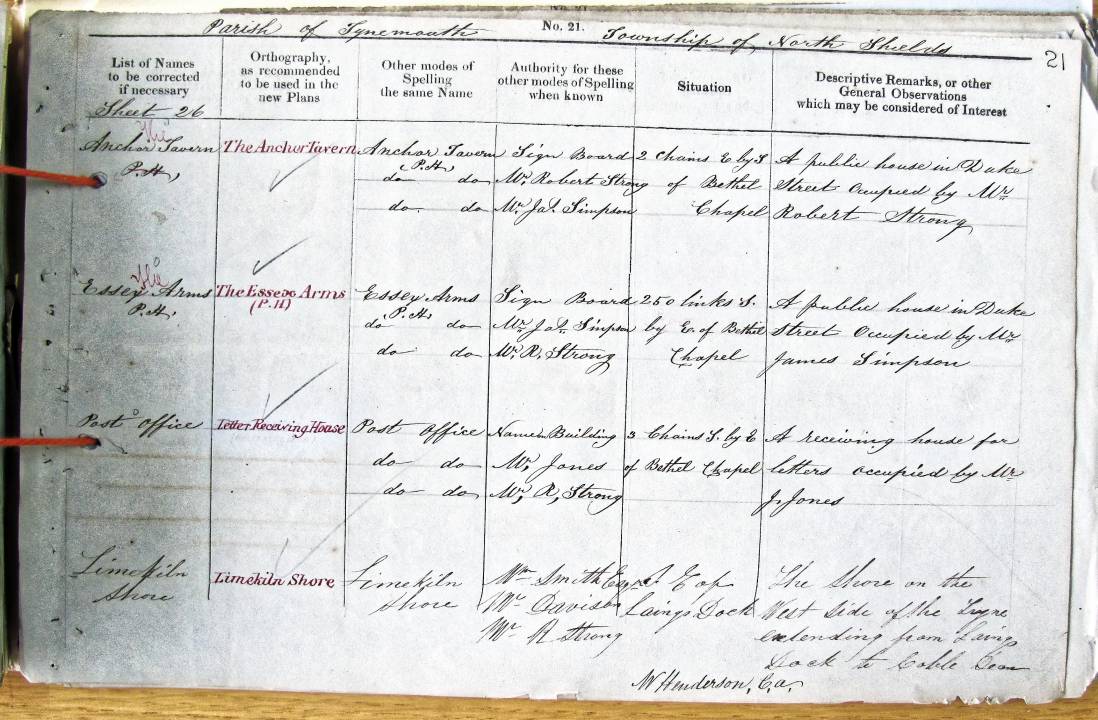 Parish of Tynemouth No. 21. Township of North Shields
21
List of Names to be corrected if necessary
Orthography, as recommended to be used in the new Plans
Other modes of Spelling the same Name
Authority for these other modes of Spelling when known
Situation
Descriptive Remarks, or other General Observations which may be considered of Interest
Sheet 26
The
Anchor Tavern The Anchor Tavern Anchor Tavern Sign Board 2 Chains E by S A public house in Duke
P.H, (P.H) do do Mr. Robert Strong of Bethel Street occupied by Mr
do. do Mr. Jas. Simpson Chapel Robert Strong
The
Essex Arms The Essex Arms Essex Arms Sign Board 250 links S. A public house in Duke
P.H, (P.H) (P.H) do do Mr Jas. Simpson by E. of Bethel Street Occupied by Mr
do do Mr. R. Strong Chapel James Simpson
Post Office Letter Receiving House Post Office Name on Building 3 Chains S. by E A receiving house for
do do Mr, Jones of Bethel Chapel letters occupied by Mr
do do Mr, R, Strong J. Jones
Limekiln Limekiln Shore Limekiln Wm Smith Esqr S. E of The Shore on the
Shore Shore Mr Davison Laings Dock West side of the Tyne
Mr R Strong extending from Laings
Dock to Coble Dean
W Henderson, Ca.